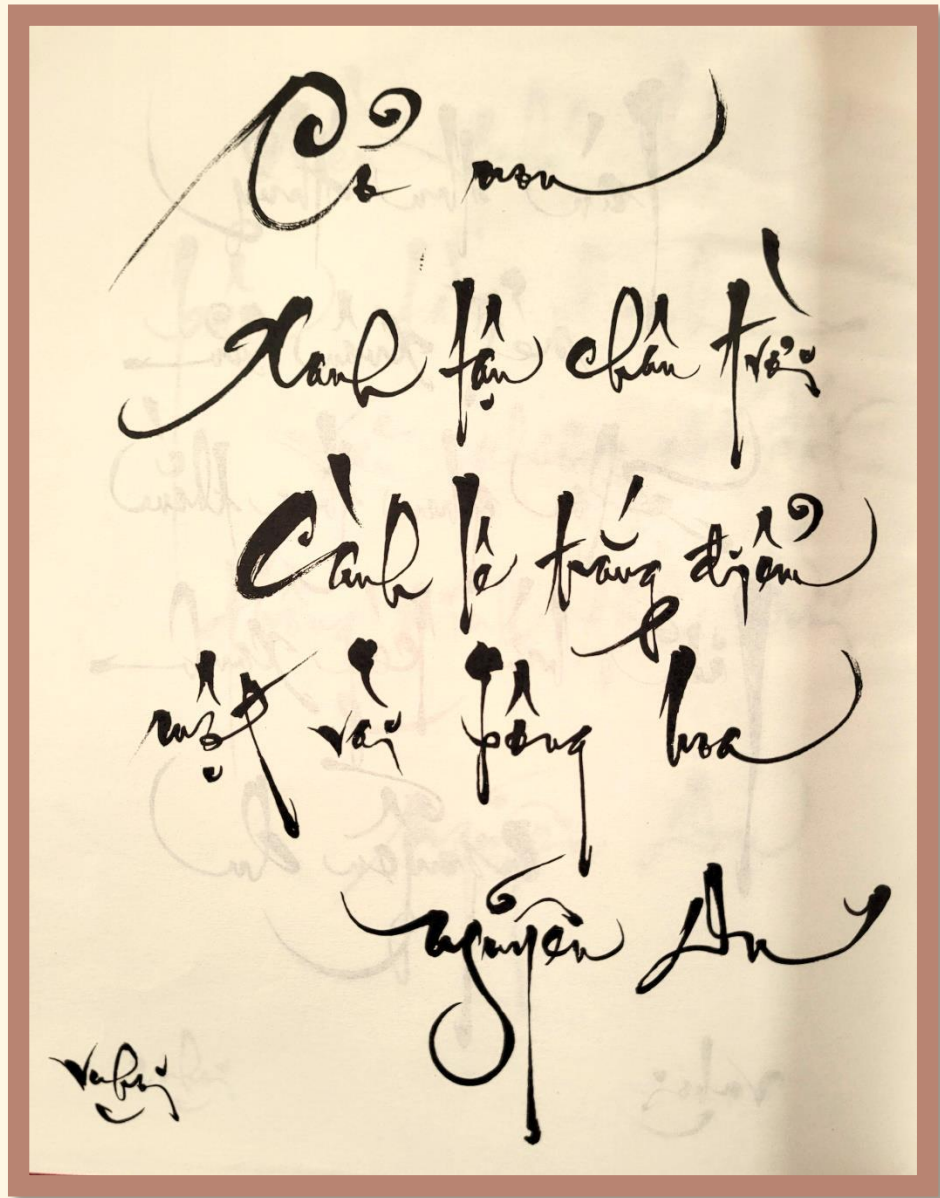 Cỏ non
Xanh tận chân trời
Cành lê trắng điểm
một vài bông hoa
Nguyễn Du